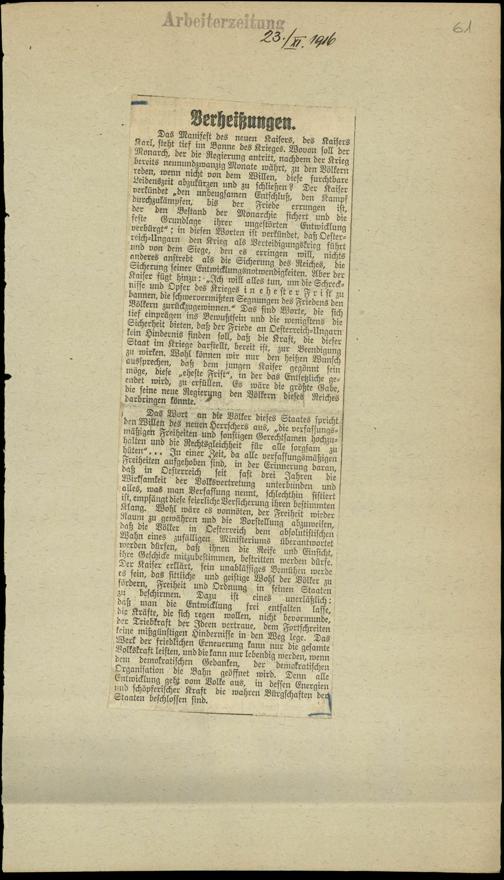 Arbeiterzeitung
23./XI. 1916
61
Verheißungen.
Das Manifest des neuen Kaisers, des Kaisers
Karl, steht tief im Banne des Krieges. Wovon soll der
Monarch, der die Regierung antritt, nachdem der Krieg
bereits neunundzwanzig Monate währt, zu den Völkern
reden, wenn nicht von dem Willen, diese furchtbare
Leidenszeit abzukürzen und zu schließen? Der Kaiser
verkündet „den unbeugsamen Entschluß, den Kampf
durchzukämpfen, bis der Friede errungen ist,
der den Bestand der Monarchie sichert und die
feste Grundlage ihrer ungestörten Entwicklung
verbürgt“; in diesen Worten ist verkündet, daß Oester-
reich-Ungarn den Krieg als Verteidigungskrieg führt
und von dem Siege, den es erringen will, nichts
anderes anstrebt als die Sicherung des Reiches, die
Sicherung seiner Entwicklungsnotwendigkeiten. Aber der
Kaiser fügt hinzu: „Ich will alles tun, um die Schreck-
nisse und Opfer des Krieges in ehester Frist zu
bannen, die schwervermißten Segnungen des Friedens den
Völkern zurückzugewinnen.“ Das sind Worte, die sich
tief einprägen ins Bewußtsein und die wenigstens die
Sicherheit bieten, daß der Friede an Oesterreich-Ungarn
kein Hindernis finden soll, daß die Kraft, die dieser
Staat im Kriege darstellt, bereit ist, zur Beendigung
zu wirken. Wohl können wir nur den heißen Wunsch
aussprechen, daß dem jungen Kaiser gegönnt sein
möge, diese „eheste Frist“, in der das Entsetzliche ge-
endet wird, zu erfüllen. Es wäre die größte Gabe,
die seine neue Regierung den Völkern dieses Reiches
darbringen könnte.
Das Wort an die Völker dieses Staates spricht
den Willen des neuen Herrschers aus, „die verfassungs-
mäßigen Freiheiten und sonstigen Gerechtsamen hochzu-
halten und die Rechtsgleichheit für alle sorgsam zu
hüten“... In einer Zeit, da alle verfassungsmäßigen
Freiheiten aufgehoben sind, in der Erinnerung daran,
daß in Oesterreich seit fast drei Jahren die
Wirksamkeit der Volksvertretung unterbunden und
alles, was man Verfassung nennt, schlechthin sistiert
ist, empfängt diese feierliche Versicherung ihren bestimmten
Klang. Wohl wäre es vonnöten, der Freiheit wieder
Raum zu gewähren und die Vorstellung abzuweisen,
daß die Völker in Oesterreich dem absolutistischen
Wahn eines zufälligen Ministeriums überantwortet
werden dürfen, daß ihnen die Reife und Einsicht,
ihre Geschicke mitzubestimmen, bestritten werden dürfe.
Der Kaiser erklärt, sein unablässiges Bemühen werde
es sein, das sittliche und geistige Wohl der Völker zu
fördern, Freiheit und Ordnung in seinen Staaten
zu beschirmen. Dazu ist eines unerläßlich:
daß man die Entwicklung frei entfalten lasse,
die Kräfte, die sich regen wollen, nicht bevormunde,
der Triebkraft der Ideen vertraue, dem Fortschreiten
keine mißgünstigen Hindernisse in den Weg lege. Das
Werk der friedlichen Erneuerung kann nur die gesamte
Volkskraft leisten, und die kann nur lebendig werden, wenn
dem demokratischen Gedanken, der demokratischen
Organisation die Bahn geöffnet wird. Denn alle
Entwicklung geht vom Volke aus, in dessen Energien
und schöpferischer Kraft die wahren Bürgschaften der
Staaten beschlossen sind.